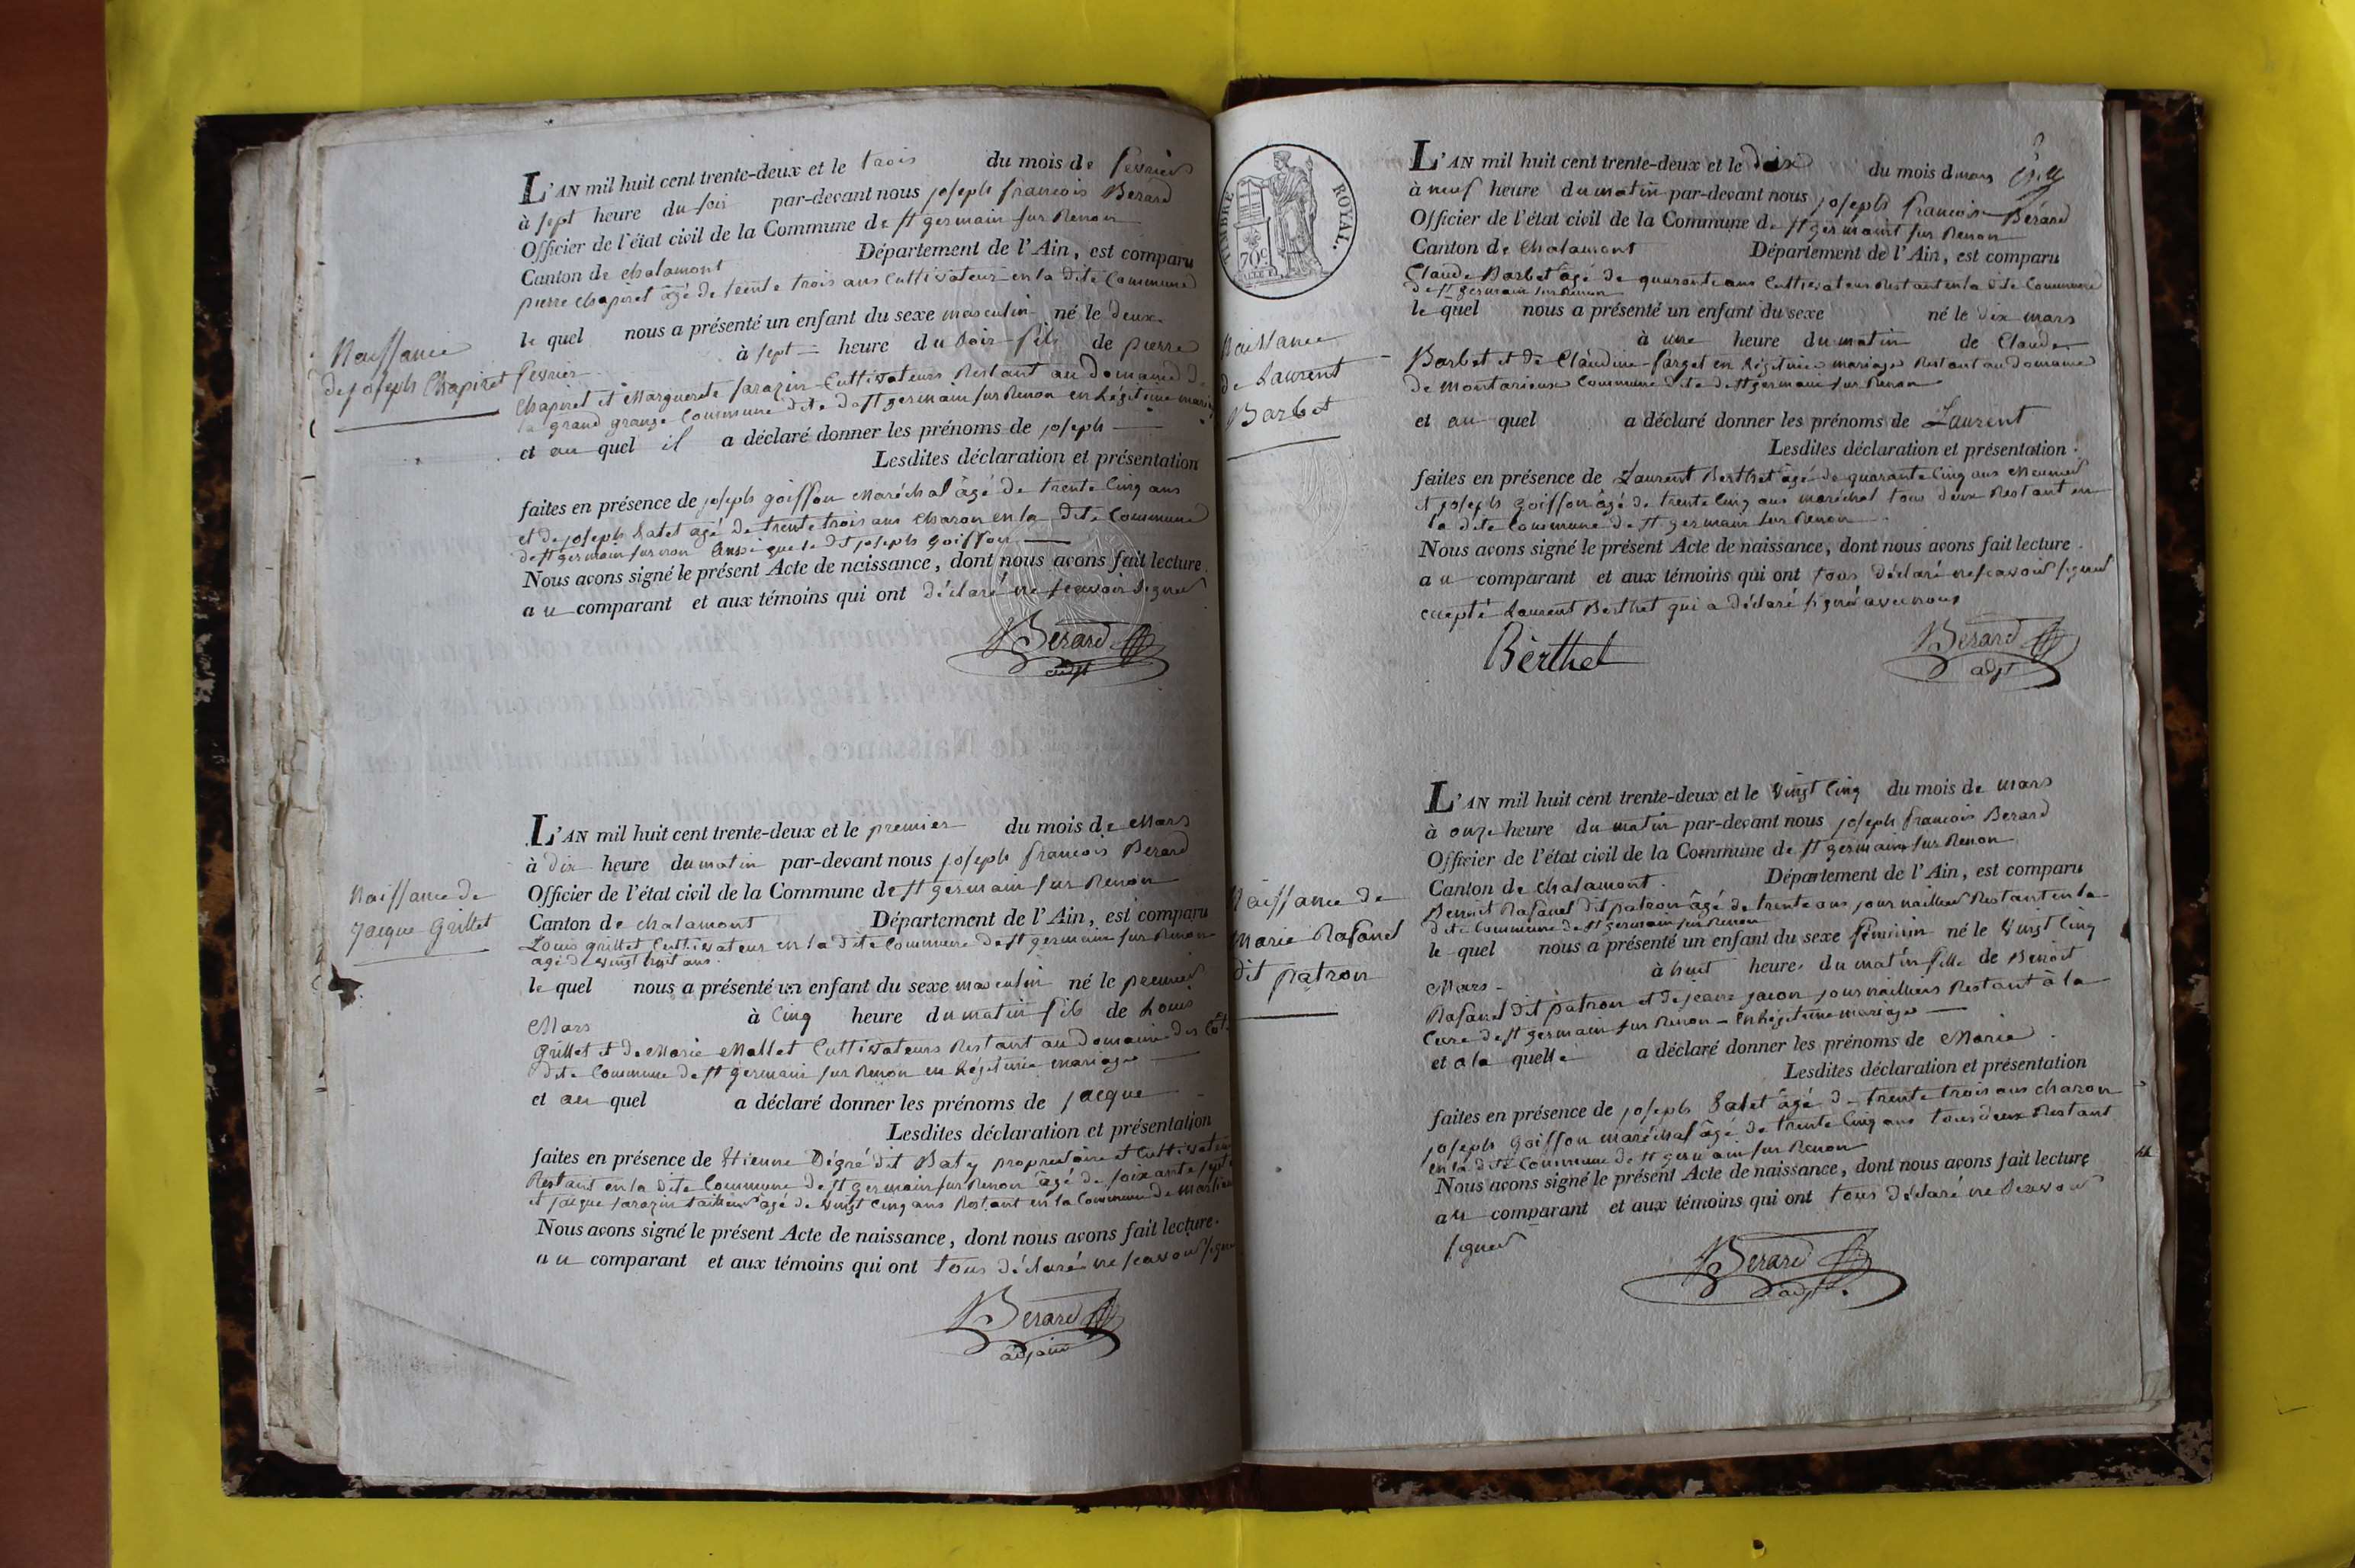 L'AN mil huit cent trente-deux et le trois du mois de fevrier
à sept heure du soir par-devant nous joseph francois Berard
Officier de l'état civil de la Commune de st germain sur Renon
Canton de chalamont Département de l'Ain, est comparu
pierre chapiret âgé de trente trois ans Cultivateur en la dite Commune
le quel nous a présenté un enfant du sexe masculin né le deux
Naissance
de joseph Chapiret
fevrier à sept heure du soir fils de pierre
Chapiret et Marguerete sarazin Cultivateurs Restant au Domaine de
la grand grange Commune dite de st germain sur Renon en Légitime
et au quel il a déclaré donner les prénoms de joseph
Lesdites déclaration et présentation
faites en présence de joseph goiffon Maréchal âgé de trente Cinq ans
et de joseph Satet âgé de trente trois ans charon en la dite Commune
de st germain sur le dit joseph goiffon
Nous avons signé le présent Acte de naissance, dont nous avons fait lecture
au comparant et aux témoins qui ont déclaré ne scavoir signer
Berard
adjt
L'AN mil huit cent trente-deux et le premier du mois de Mars
à dix heure du matin par-devant nous joseph francois Berard
Officier de l'état civil de la Commune de st germain sur Renon
Naissance de
jacque Grillet
Canton de chalamont Département de l'Ain, est comparu
Louis grillet Cultivateur en la dite Commune de st germain sur Renon
âgé de vingt huit ans
le quel nous a présenté un enfant du sexe masculin né le premier
Mars à Cinq heure du matin fils de Louis
grillet et de Marie Mallet Cultivateurs Restant au Domaine des
dite Commune de st germain sur Renon en Légitime mariage
et au quel a déclaré donner les prénoms de jacque
Lesdites déclaration et présentation
faites en présence de Etienne Dégré dit Baty propriétaire et Cultivateur
Restant en la dite Commune de st germain sur Renon âgé de soixante
et jacque sarazin tailleur âgé de vingt Cinq ans Restant en la Commune de
Nous avons signé le présent Acte de naissance, dont nous avons fait lecture.
au comparant et aux témoins qui ont tous déclaré ne scavoir signer
Berard
adjoint
TIMBRE ROYAL.
70c
L'AN mil huit cent trente-deux et le dix du mois de mars
à neuf heure du matin par-devant nous joseph francois Bérard
Officier de l'état civil de la Commune de st germaint sur Renon
Canton de chalamont Département de l'Ain, est comparu
Claude Barbet âgé de quarante ans Cultivateur Restant en la dite Commune
de st germain sur Renon
le quel nous a présenté un enfant du sexe né le dix mars
Naissance
de Laurent
Barbet
à une heure du matin de Claude
Barbet et de Claudine farget en Légitime mariage Restant au Domaine
de Montarieux Commune dite de st germain sur Renon
et au quel a déclaré donner les prénoms de Laurent
Lesdites déclaration et présentation
faites en présence de Laurent Berthet âgé de quarante Cinq ans Meunier
et joseph goiffon âgé de trente Cinq ans maréchal tous deux Restant en
la dite Commune de st germain sur Renon
Nous avons signé le présent Acte de naissance, dont nous avons fait lecture
au comparant et aux témoins qui ont tous déclaré ne scavoir signer
excepté Laurent Berthet qui a déclaré signé avec nous
Bérthet
Berard
adjt
L'AN mil huit cent trente-deux et le Vingt Cinq du mois de mars
à onze heure du matin par-devant nous joseph francois Berard
Officier de l'état civil de la Commune de st germain sur Renon
Canton de chalamont. Département de l'Ain, est comparu
Naissance de
Marie Rafanel
dit patron
Benoit Rafanel dit patron âgé de trente ans journailleur Restant en la
dite Commune de st germain sur Renon
le quel nous a présenté un enfant du sexe féminin né le Vingt Cinq
Mars à huit heure du matin fille de Benoit
Rafanel dit patron et de jeane jacon journailliers Restant à la
Cure de st germain sur Renon en Légitime mariage
et a la quelle a déclaré donner les prénoms de Marie
Lesdites déclaration et présentation
faites en présence de joseph Satet âgé de trente trois ans charon
joseph goiffon maréchal âgé de trente Cinq ans tous deux Restant
en la dite Commune de st germain sur Renon
Nous avons signé le présent Acte de naissance, dont nous avons fait lecture
au comparant et aux témoins qui ont tous déclaré ne scavoir
signer
Berard
adjt.